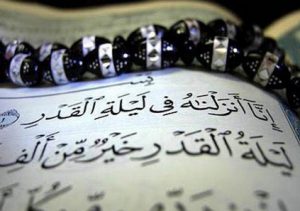 إِنَّا أَنزَلْنَٰهُ فِى لَيْلَةِ ٱلْقَدْرِ
لَيْلَةُ ٱلْقَدْرِ خَيْرٌ مِّنْ أَلْفِ